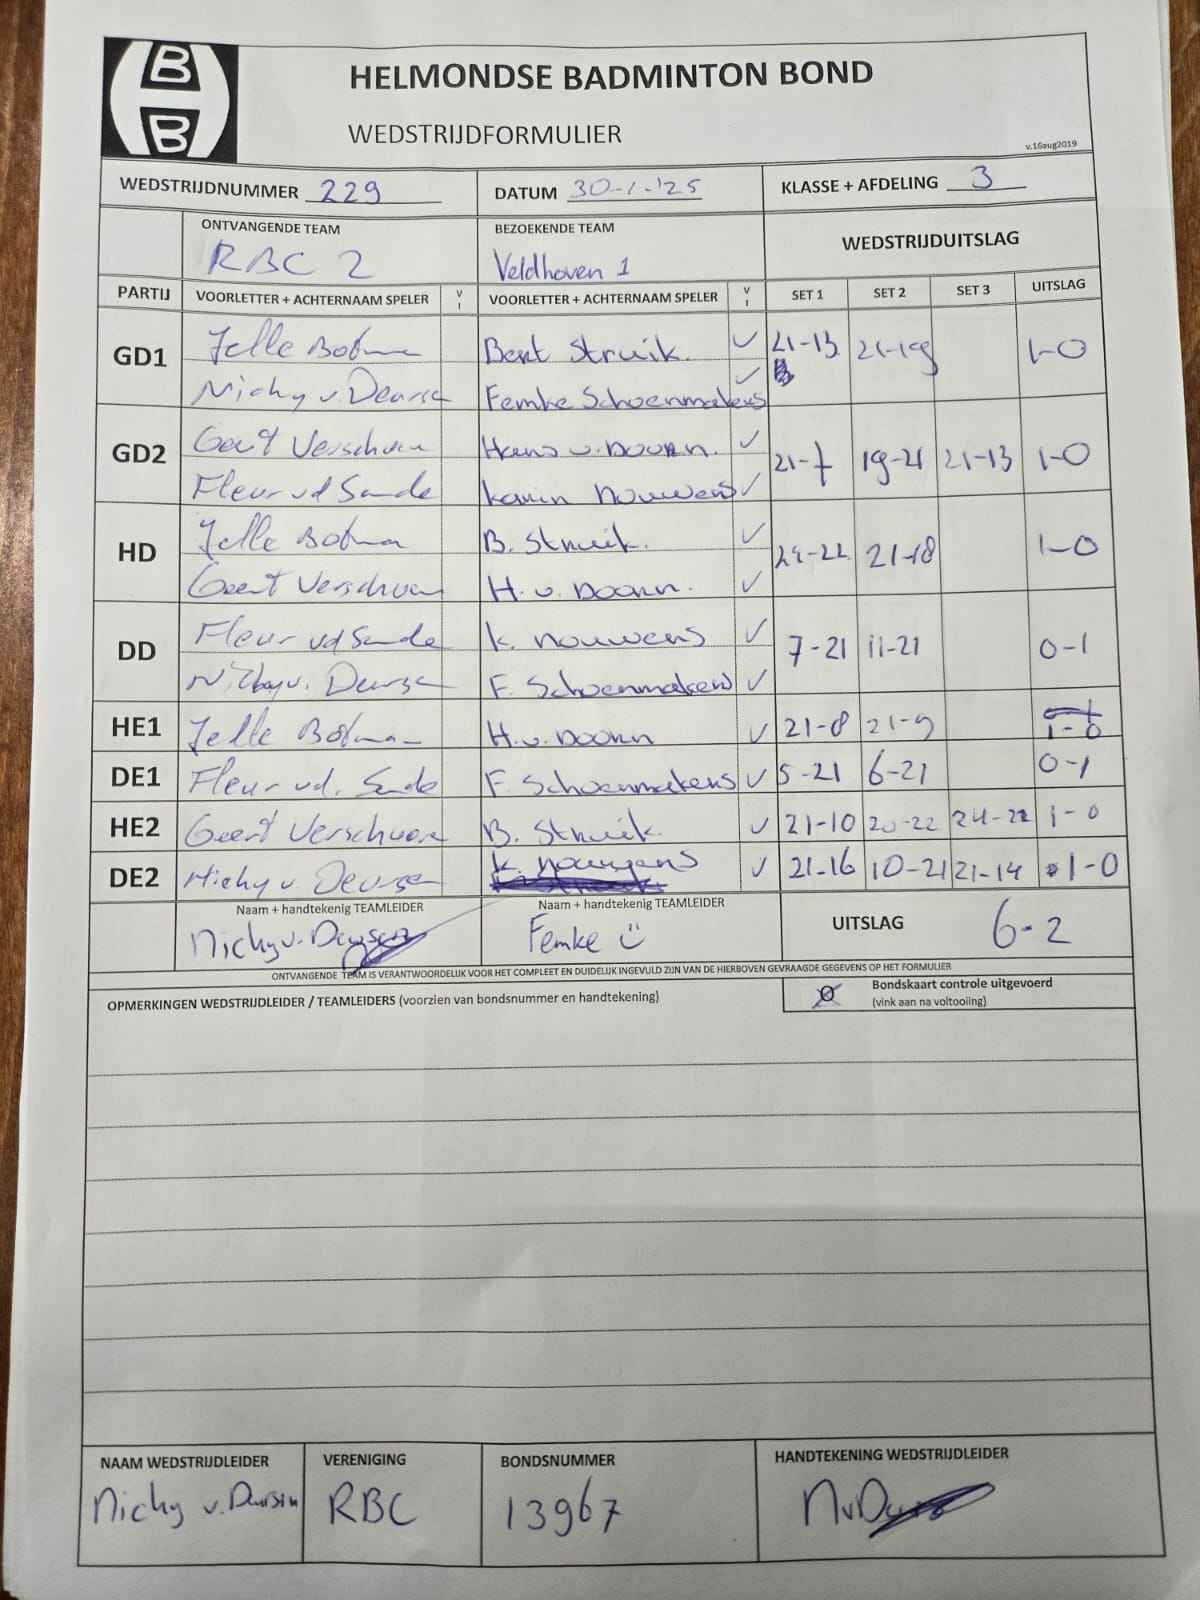 B
B
HELMONDSE BADMINTON BOND
WEDSTRIJDFORMULIER
v.16aug2019
WEDSTRIJDNUMMER 229 DATUM 30-1-'25 KLASSE + AFDELING 3
ONTVANGENDE TEAM BEZOEKENDE TEAM WEDSTRIJDUITSLAG
RBC 2 Veldhoven 1
PARTIJ VOORLETTER + ACHTERNAAM SPELER V I VOORLETTER + ACHTERNAAM SPELER V I SET 1 SET 2 SET 3 UITSLAG
GD1 Jelle Botman Bert Struik. ✓ 21-13 21-19 1-0
Nichy v. Deursen Femke Schoenmakers ✓
GD2 Geert Verschuren Hans v. Doorn. ✓ 21-7 19-21 21-13 1-0
Fleur vd Sande Karin Nouwens ✓
HD Jelle Botman B. Struik. ✓ 24-22 21-18 1-0
Geert Verschuren H. v. Doorn. ✓
DD Fleur vd Sande K. Nouwens ✓ 7-21 11-21 0-1
Nichy v. Deursen F. Schoenmakers ✓
HE1 Jelle Botman H. v. Doorn ✓ 21-8 21-9 1-0
DE1 Fleur vd. Sande F. Schoenmakers ✓ 5-21 6-21 0-1
HE2 Geert Verschuren B. Struik. ✓ 21-10 20-22 24-22 1-0
DE2 Nichy v. Deursen K. Nouwens ✓ 21-16 10-21 21-14 1-0
Naam + handtekenig TEAMLEIDER Naam + handtekenig TEAMLEIDER UITSLAG 6-2
Nichy v. Deursen Femke
ONTVANGENDE TEAM IS VERANTWOORDELIJK VOOR HET COMPLEET EN DUIDELIJK INGEVULD ZIJN VAN DE HIERBOVEN GEVRAAGDE GEGEVENS OP HET FORMULIER
OPMERKINGEN WEDSTRIJDLEIDER / TEAMLEIDERS (voorzien van bondsnummer en handtekening) Bondskaart controle uitgevoerd
(vink aan na voltooiing)
NAAM WEDSTRIJDLEIDER VERENIGING BONDSNUMMER HANDTEKENING WEDSTRIJDLEIDER
Nichy v. Deursen RBC 13967